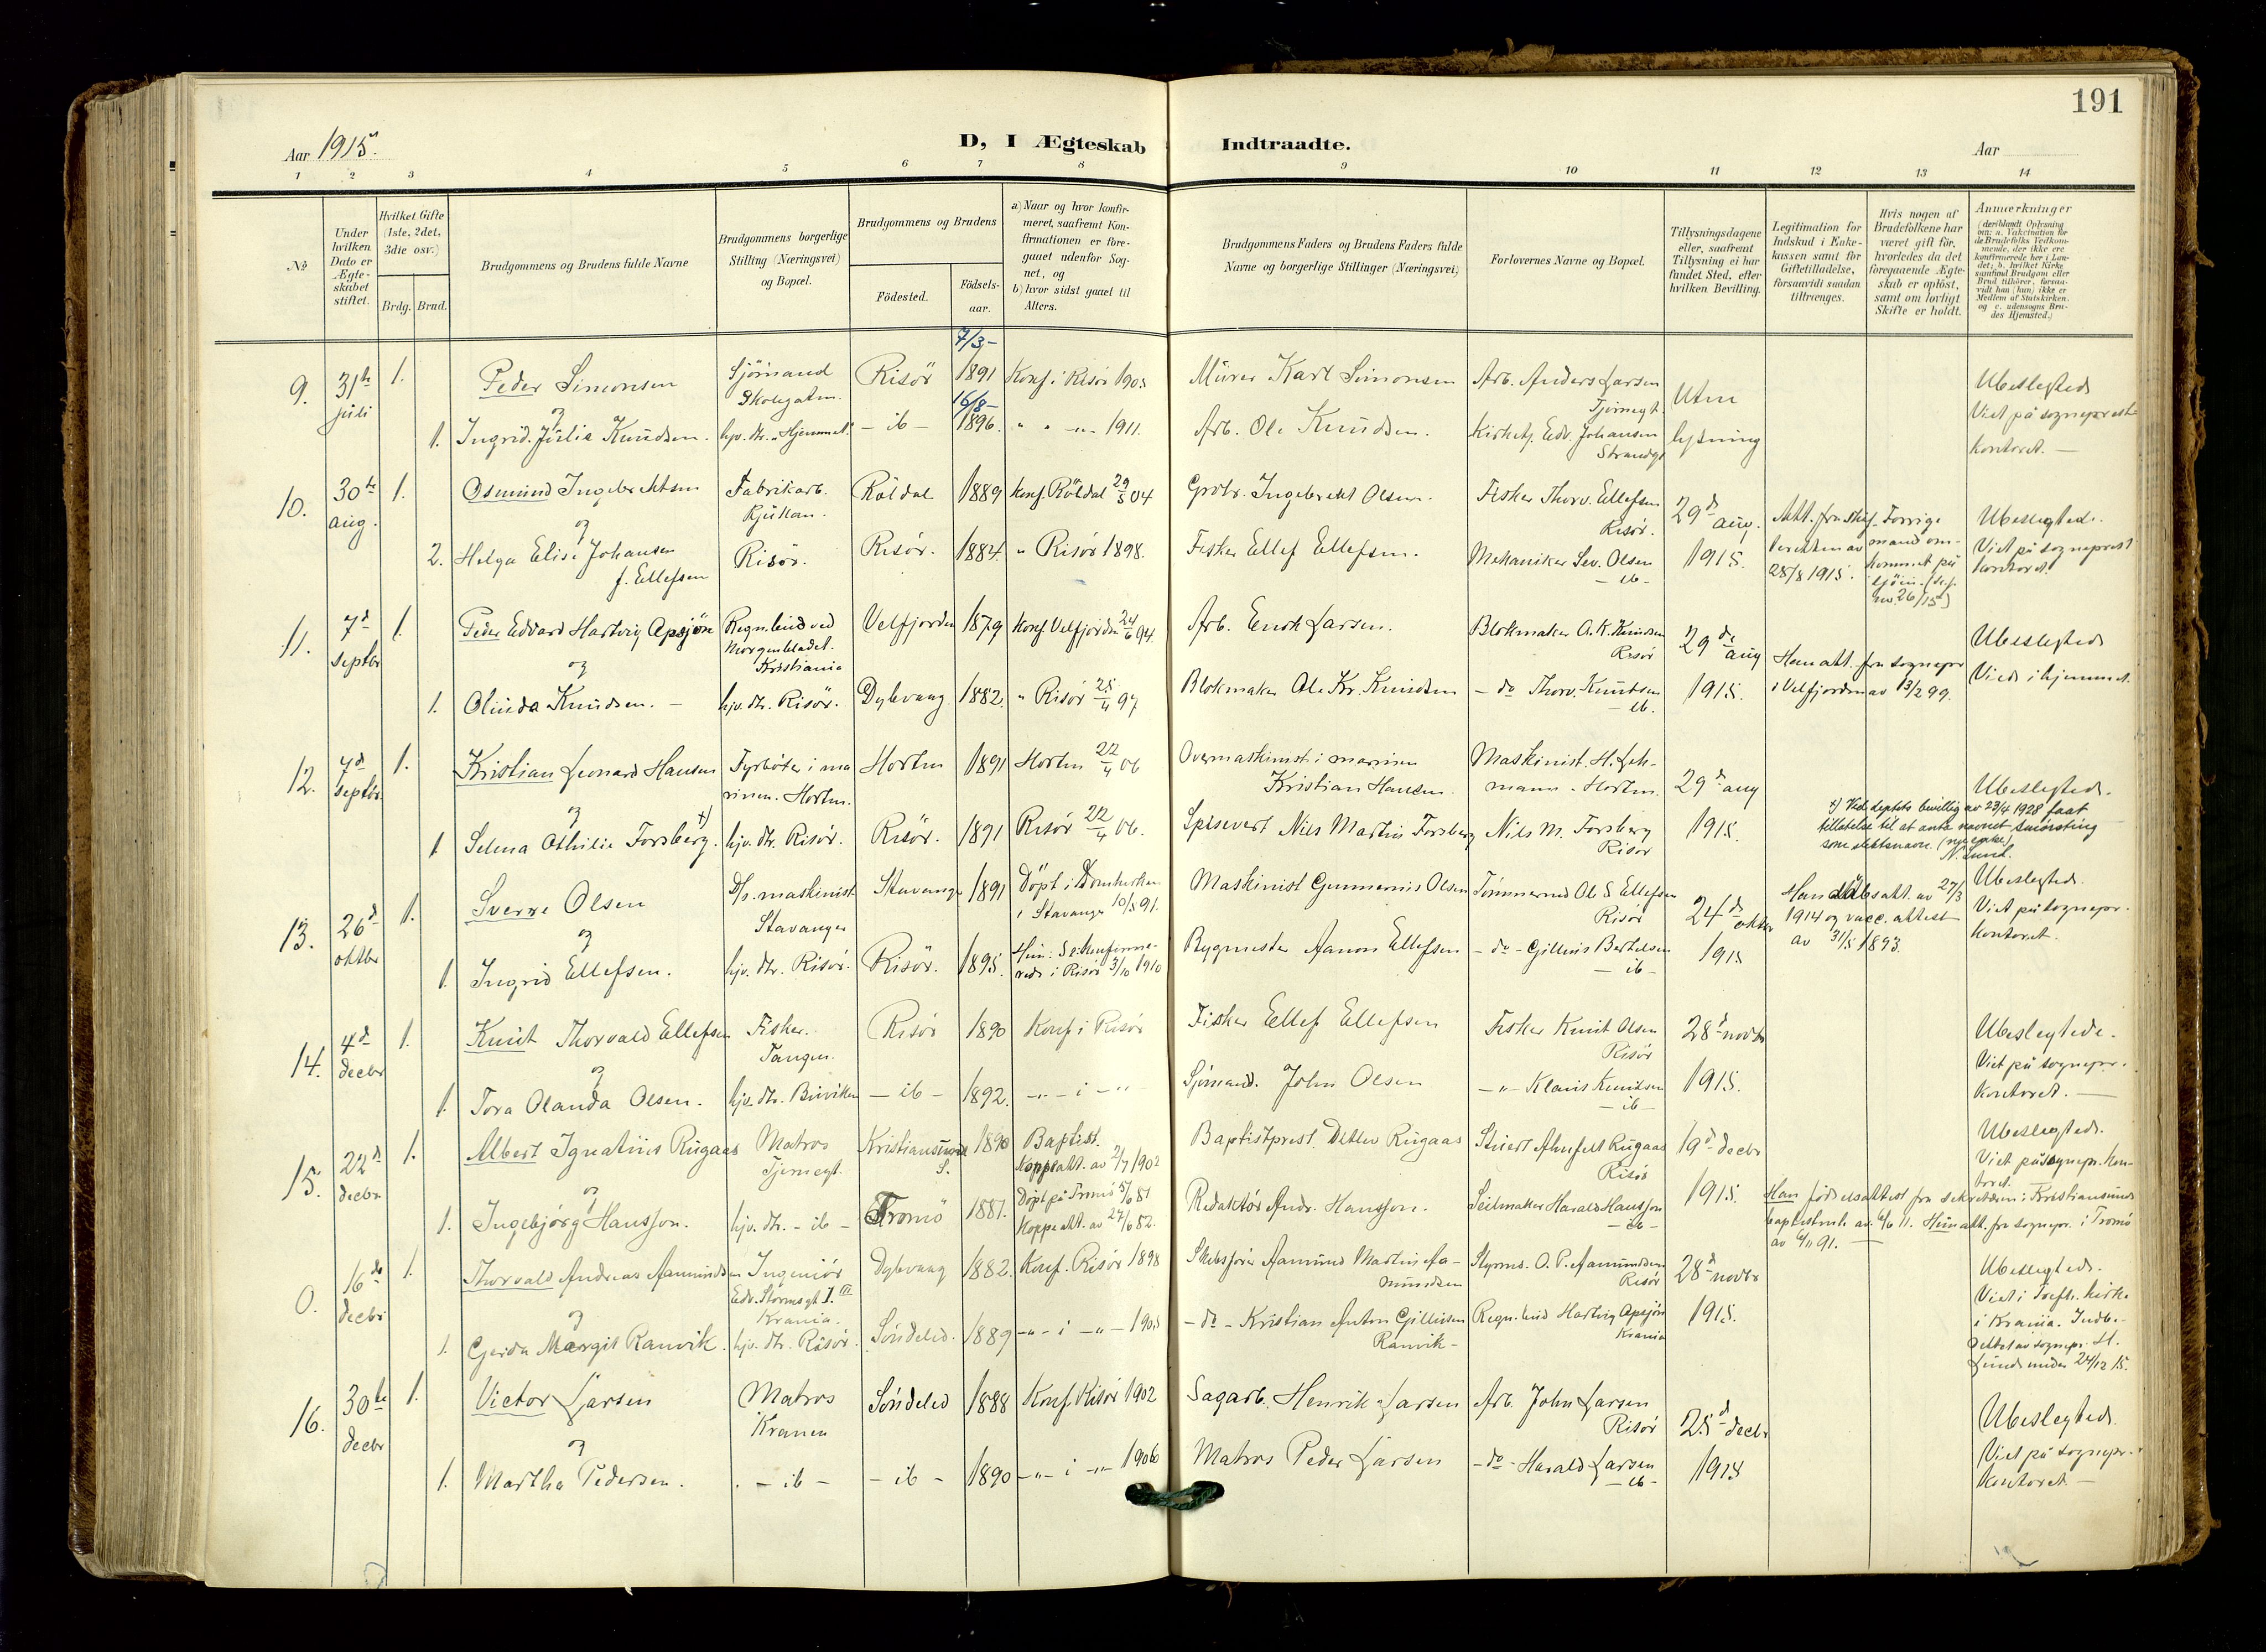 191
Aar 1915.
D, I Ægteskab Indtraadte.
Aar
1 2 3 4 5 6 7 8 9 10 11 12 13 14
No
Under hvilken Dato er Ægteskabet stiftet.
Hvilket Gifte (1ste, 2det, 3die osv.)
Brdg. Brud.
Brudgommens og Brudens fulde Navne
Brudgommens borgerlige Stilling (Næringsvei) og Bopæl.
Brudgommens og Brudens
Födested.
Födselsaar.
a) Naar og hvor konfirmeret, saafremt Konfirmationen er foregaaet udenfor Sognet, og
b) hvor sidst gaaet til Alters.
Brudgommens Faders og Brudens Faders fulde Navne og borgerlige Stillinger (Næringsvei)
Forlovernes Navne og Bopæl.
Tillysningsdagene eller, saafremt Tillysning ei har fundet Sted, efter hvilken Bevilling.
Legitimation for Indskud i Enkekassen samt for Giftetilladelse, forsaavidt saadan tiltrænges.
Hvis nogen af Brudefolkene har været gift för, hvorledes da det foregaaende Ægteskab er oplöst, samt om lovligt Skifte er holdt.
Anmerkninger (deriblandt Oplysning om: a. Vakcination for de Brudefolks Vedkommende, der ikke ere konfirmerede her i Landet; b. hvilket Kirkesamfund Brudgom eller Brud tilhörer, forsaavidt han (hun) ikke er Medlem af Statskirken, og c. udensogns Brudes Hjemsted.)
9. 31te juli 1. Peder Simonsen Sjömand Skolegaten. Risör 7/3- 1891 Konf. i Risör 1905 Murer Karl Simonsen Arb. Anders Larsen Tjernegt Uten Ubeslegtede
og
1. Ingrid Julia Knudsen. hjv. dtr. "Hjemmet." - ib - 16/8- 1896. " " -"- 1911. Arb. Ole Knudsen. Kirketj. Edv. Johansen Strandgt lysning Viet på sogneprestkontoret. -
10. 30te aug. 1. Osmund Ingebrektsen Fabrikarb. Rjukan. Röldal 1889 Konf. Röldal 29/5 04 Grbr. Ingebrekt Olsen. Fisker Thorv. Ellefsen Risör. 29d aug. Att. fra skifteretten av 28/8 1915. Forrige mand omkommet på sjöen. Ubeslegtede.
og
2. Helga Elise Johansen f. Ellefsen Risör. Risör. 1884. " Risör 1898. Fisker Ellef Ellefsen. Mekaniker Sev. Olsen - ib - 1915. Viet på sogneprestkontoret.
11. 7d septbr 1. Peder Edvard Hartvig Apsjön Regn. bud ved Morgenbladet. Kristiania Velfjorden 1879 Konf. Velfjorden 24/6 94. Arb. Enok Larsen. Blokmaker O. K. Knudsen Risör 29de aug Han att. fra sognepr Ubeslegtede
og
1. Olinda Knudsen. - hjv. dtr. Risör. Dybvaag 1882. " Risör 25/4 97 Blokmaker Ole Kr. Knudsen - do Thorv. Knudsen - ib. 1915. i Velfjorden av 13/2 99. Viede i hjemmet.
12. 7d septbr. 1. Kristian Leonard Hansen Fyrböter i marinen. Horten. Horten 1891 Horten 22/4 06 Overmaskinist i marinen Kristian Hansen. Maskinist H. Lehmann - Horten. 29d aug Ubeslegtede.
og
1 Selma Othilie Forsberg. x) hjv. dtr. Risör. Risör. 1891 Risör 22/4 06. Spisevert Nils Martin Forsberg Nils M. Forsberg Risör 1915.
x) Ved deptets bevillig av 23/4 1928 faat
tillatelse til at anta navnet Smörsting
som slektsnavn.
N. Lund.
13. 26d oktbr 1. Sverre Olsen D/s. maskinist Stavanger Stavanger 1891 Döpt i Domkirken i Stavanger 10/5 91. Maskinist Gunnarius Olsen Tömmermd Ole S Ellefsen Risör 24d oktbr Han dåbsatt. av 27/3 1914 og vacc. attest av 31/5 1893. Ubeslegtede.
og
1. Ingrid Ellefsen. hjv. dtr. Risör. Risör. 1895. Hun: konfirmeret i Risör 3/10 1910 Bygmester Aanon Ellefsen - do - Gillius Bertelsen - ib - 1915 Viet på sognepr. kontoret.
14. 4d decbr 1. Knut Thorvald Ellefsen Fisker. Tangen. Risör 1890 Konf i Risör Fisker Ellef Ellefsen Fisker Knut Olsen Risör 28d novbr Ubeslegtede.
og
1. Tora Olanda Olsen. hjv. dtr. Buviken - ib - 1892. -"- i -"- Sjömand. John Olsen -"- Klaus Knudsen - ib - 1915. Viet på sognepr. kontoret. -
15. 22d decbr 1. Albert Ignatius Rugaas Matros Tjernegt. Kristiansund S. 1890 Baptist. Koppeatt. av 2/7 1902 Baptistprest Detlev Rugaas Stuert Ahnfelt Rugaas Risör 19d decbr Ubeslegtede.
og
1. Ingebjörg Hansson. hjv. dtr. - ib - Tromö 1881. Döpt på Tromö 5/6 81 Koppeatt. av 27/6 82. Redaktör Andr. Hansson. Seilmaker Harald Hansson - ib - 1915. Viet på sognepr. kontoret.
Han födselsattest fra sekretæren i Kristiansunds
baptistmh av 6/6 11. Hun att. fra sognepr. i Tromö
av 6/11 91. -
0. 16de decbr 1. Thorvald Andreas Aamundsen Ingeniör Edv. Stormsgt 1. III Krania. Dybvaag 1882. Konf. Risör 1898 Skibsförer Aamund Martin Aamundsen Styrmd. O. P. Aamundsen Risör 28d novbr Ubeslegtede.
og
1. Gerda Margit Ranvik. hjv. dtr. Risör. Söndeled. 1889 -"- i -"- 1905 - do - Kristian Anton Gillissen Ranvik - Regn. bud Hartvig Apsjön Krania 1915. Viet i kirke i Krania.
16. 30te decbr 1. Victor Larsen Matros Kranen Söndeled 1888 Konf. Risör 1902 Sagarb. Henrik Larsen Arb. John Larsen Risör 25d decbr Ubeslegtede.
og
1. Martha Pedersen. - ib - - ib - 1890 -"- i -"- 1906 Matros Peder Larsen - do - Harald Larsen - ib - 1915 Viet på sognepr. kontoret -